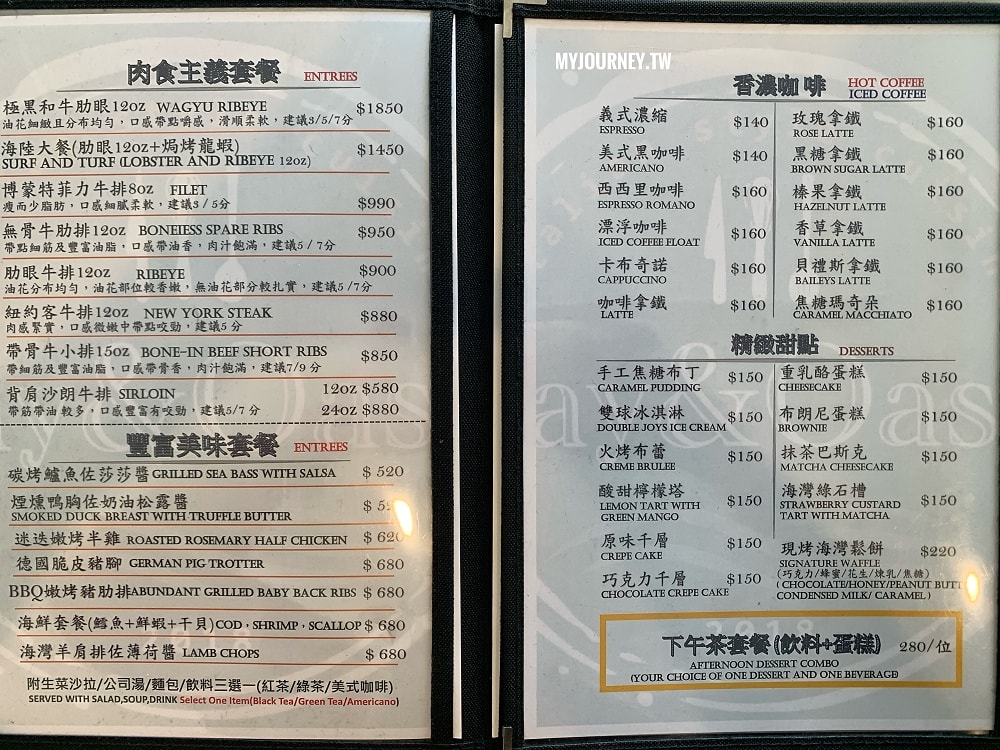 MYJOURNEY.TW
肉食主義套餐 ENTREES
極黑和牛肋眼12oz WAGYU RIBEYE $1850
油花細緻且分布均勻，口感帶點嚼感，滑順柔軟，建議3/5/7分
海陸大餐(肋眼12oz+焗烤龍蝦) $1450
SURF AND TURF (LOBSTER AND RIBEYE 12oz)
博蒙特菲力牛排8oz FILET
瘦而少脂肪，口感細膩柔軟，建議3/5分 $990
無骨牛肋排12oz BONEIESS SPARE RIBS $950
帶點細筋及豐富油脂，口感帶油香，肉汁飽滿，建議5/7分
肋眼牛排12oz RIBEYE $900
油花分布均勻，油花部位較香嫩，無油花部分較扎實，建議5/7分
紐約客牛排12oz NEW YORK STEAK $880
肉感緊實，口感微嫩中帶點咬勁，建議5分
帶骨牛小排15oz BONE-IN BEEF SHORT RIBS $850
帶細筋及豐富油脂，口感帶骨香，肉汁飽滿，建議7/9分
背肩沙朗牛排 SIRLOIN 12oz $580
帶筋帶油較多，口感豐富有咬勁，建議5/7分 24oz $880
豐富美味套餐 ENTREES
碳烤鱸魚佐莎莎醬 GRILLED SEA BASS WITH SALSA $ 520
煙燻鴨胸佐奶油松露醬 $ 5
SMOKED DUCK BREAST WITH TRUFFLE BUTTER
迷迭嫩烤半雞 ROASTED ROSEMARY HALF CHICKEN $ 620
德國脆皮豬腳 GERMAN PIG TROTTER $ 680
BBQ嫩烤豬肋排ABUNDANT GRILLED BABY BACK RIBS $ 680
海鮮套餐(鱈魚+鮮蝦+干貝)COD，SHRIMP，SCALLOP $ 680
海灣羊肩排佐薄荷醬 LAMB CHOPS $ 680
附生菜沙拉/公司湯/麵包/飲料三選一(紅茶/綠茶/美式咖啡)
SERVED WITH SALAD,SOUP,DRINK Select One Item(Black Tea/Green Tea/Americano)
香濃咖啡 HOT COFFEE
ICED COFFEE
義式濃縮 $140
ESPRESSO
美式黑咖啡 $140
AMERICANO
西西里咖啡 $160
ESPRESSO ROMANO
漂浮咖啡 $160
ICED COFFEE FLOAT
卡布奇諾 $160
CAPPUCCINO
咖啡拿鐵 $160
LATTE
玫瑰拿鐵 $160
ROSE LATTE
黑糖拿鐵 $160
BROWN SUGAR LATTE
榛果拿鐵 $160
HAZELNUT LATTE
香草拿鐵 $160
VANILLA LATTE
貝禮斯拿鐵 $160
BAILEYS LATTE
焦糖瑪奇朵 $160
CARAMEL MACCHIATO
精緻甜點 DESSERTS
手工焦糖布丁 $150
CARAMEL PUDDING
雙球冰淇淋 $150
DOUBLE JOYS ICE CREAM
火烤布蕾 $150
CREME BRULEE
酸甜檸檬塔 $150
LEMON TART WITH
GREEN MANGO
原味千層 $150
CREPE CAKE
巧克力千層 $150
CHOCOLATE CREPE CAKE
重乳酪蛋糕 $150
CHEESECAKE
布朗尼蛋糕 $150
BROWNIE
抹茶巴斯克 $150
MATCHA CHEESECAKE
海灣綠石槽 $150
STRAWBERRY CUSTARD
TART WITH MATCHA
現烤海灣鬆餅 $220
SIGNATURE WAFFLE
(巧克力/蜂蜜/花生/煉乳/焦糖)
(CHOCOLATE/HONEY/PEANUT BUTT
CONDENSED MILK/ CARAMEL)
下午茶套餐(飲料+蛋糕) 280/位
AFTERNOON DESSERT COMBO
(YOUR CHOICE OF ONE DESSERT AND ONE BEVERAGE)